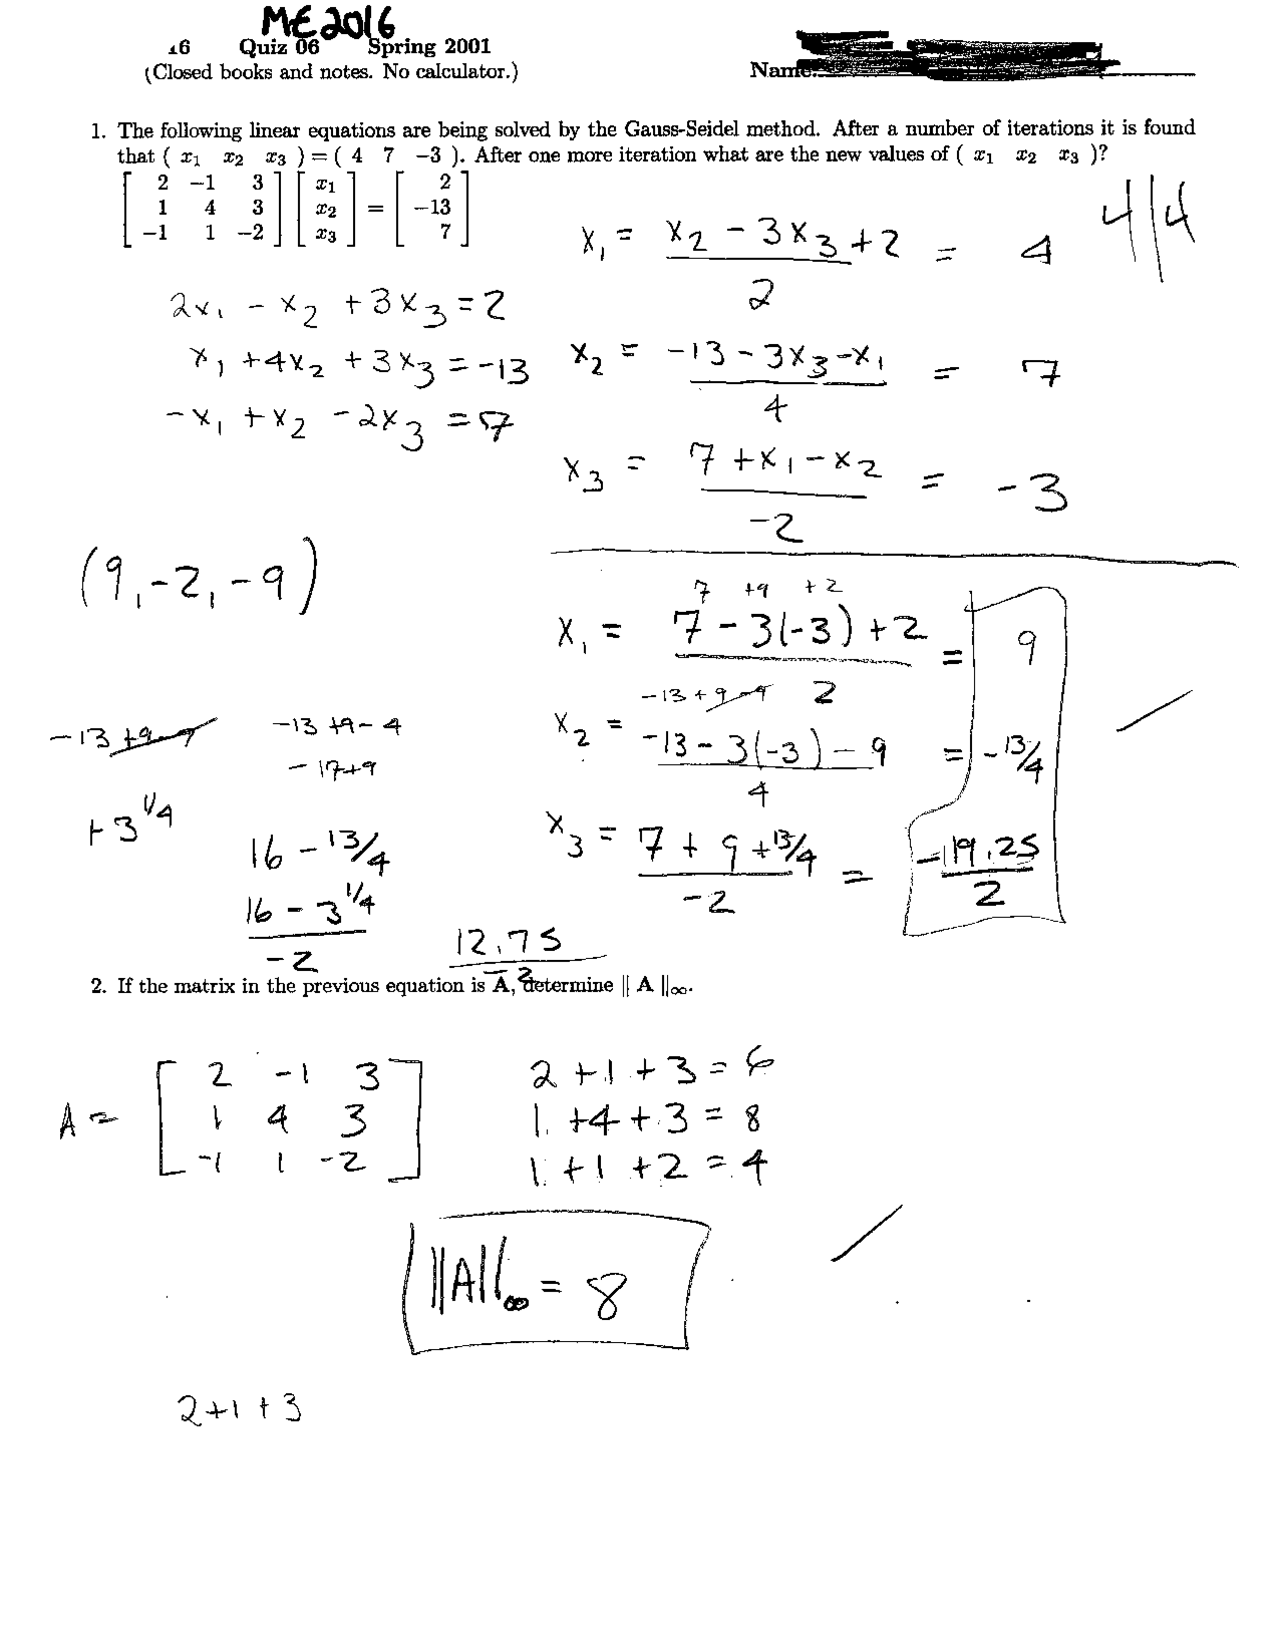 ME2016
16 Quiz 06 Spring 2001
(Closed books and notes. No calculator.) Name:
1. The following linear equations are being solved by the Gauss-Seidel method. After a number of iterations it is found
that ( x₁ x₂ x₃ ) = ( 4 7 −3 ). After one more iteration what are the new values of ( x₁ x₂ x₃ )?
[ 2 −1 3 ] [ x₁ ] [ 2 ]
[ 1 4 3 ] [ x₂ ] = [ −13 ]
[ −1 1 −2 ] [ x₃ ] [ 7 ]
4/4
x₁ = (x₂ − 3x₃ + 2)/2 = 4
2x₁ − x₂ + 3x₃ = 2
x₁ + 4x₂ + 3x₃ = −13
−x₁ + x₂ − 2x₃ = 7
x₂ = (−13 − 3x₃ − x₁)/4 = 7
x₃ = (7 + x₁ − x₂)/−2 = −3
(9, −2, −9)
7 +9 +2
x₁ = (7 − 3(−3) + 2)/2 = 9
−13 + 9 − 9
x₂ = (−13 − 3(−3) − 9)/4 = −13/4
x₃ = (7 + 9 + 13/4)/−2 = −19.25/2
−13 + 9 − 9
−13 + 9 − 4
−17 + 9
+ 3 1/4
16 − 13/4
(16 − 3 1/4)/−2
12.75/−2
2. If the matrix in the previous equation is A, determine ‖ A ‖∞.
A = [ 2 −1 3 ]
[ 1 4 3 ]
[ −1 1 −2 ]
2 + 1 + 3 = 6
1 + 4 + 3 = 8
1 + 1 + 2 = 4
‖A‖∞ = 8
2 + 1 + 3